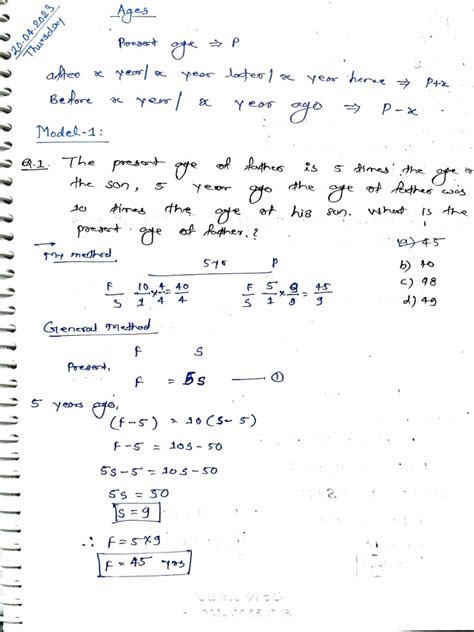 20.04.2023
Thursday
Ages
Present age ⇒ P
after x year/ x year later/ x year hence ⇒ P+x
Before x year/ x year ago ⇒ P-x
Model-1:
Q.1. The present age of father is 5 times the age is
the son, 5 year ago the age of father was
10 times the age of his son. What is the
present age of father.?
a) 45
b) 40
c) 48
d) 49
→ My method
5 yrs P
F/S 10/1 × 4/4 = 40/4 F/S 5/1 × 9/9 = 45/9
General Method
F S
Present,
F = 5S —— ①
5 years ago,
(F-5) = 10(S-5)
F-5 = 10S-50
5S-5 = 10S-50
5S = 50
S = 9
∴ F = 5×9
F = 45 yrs